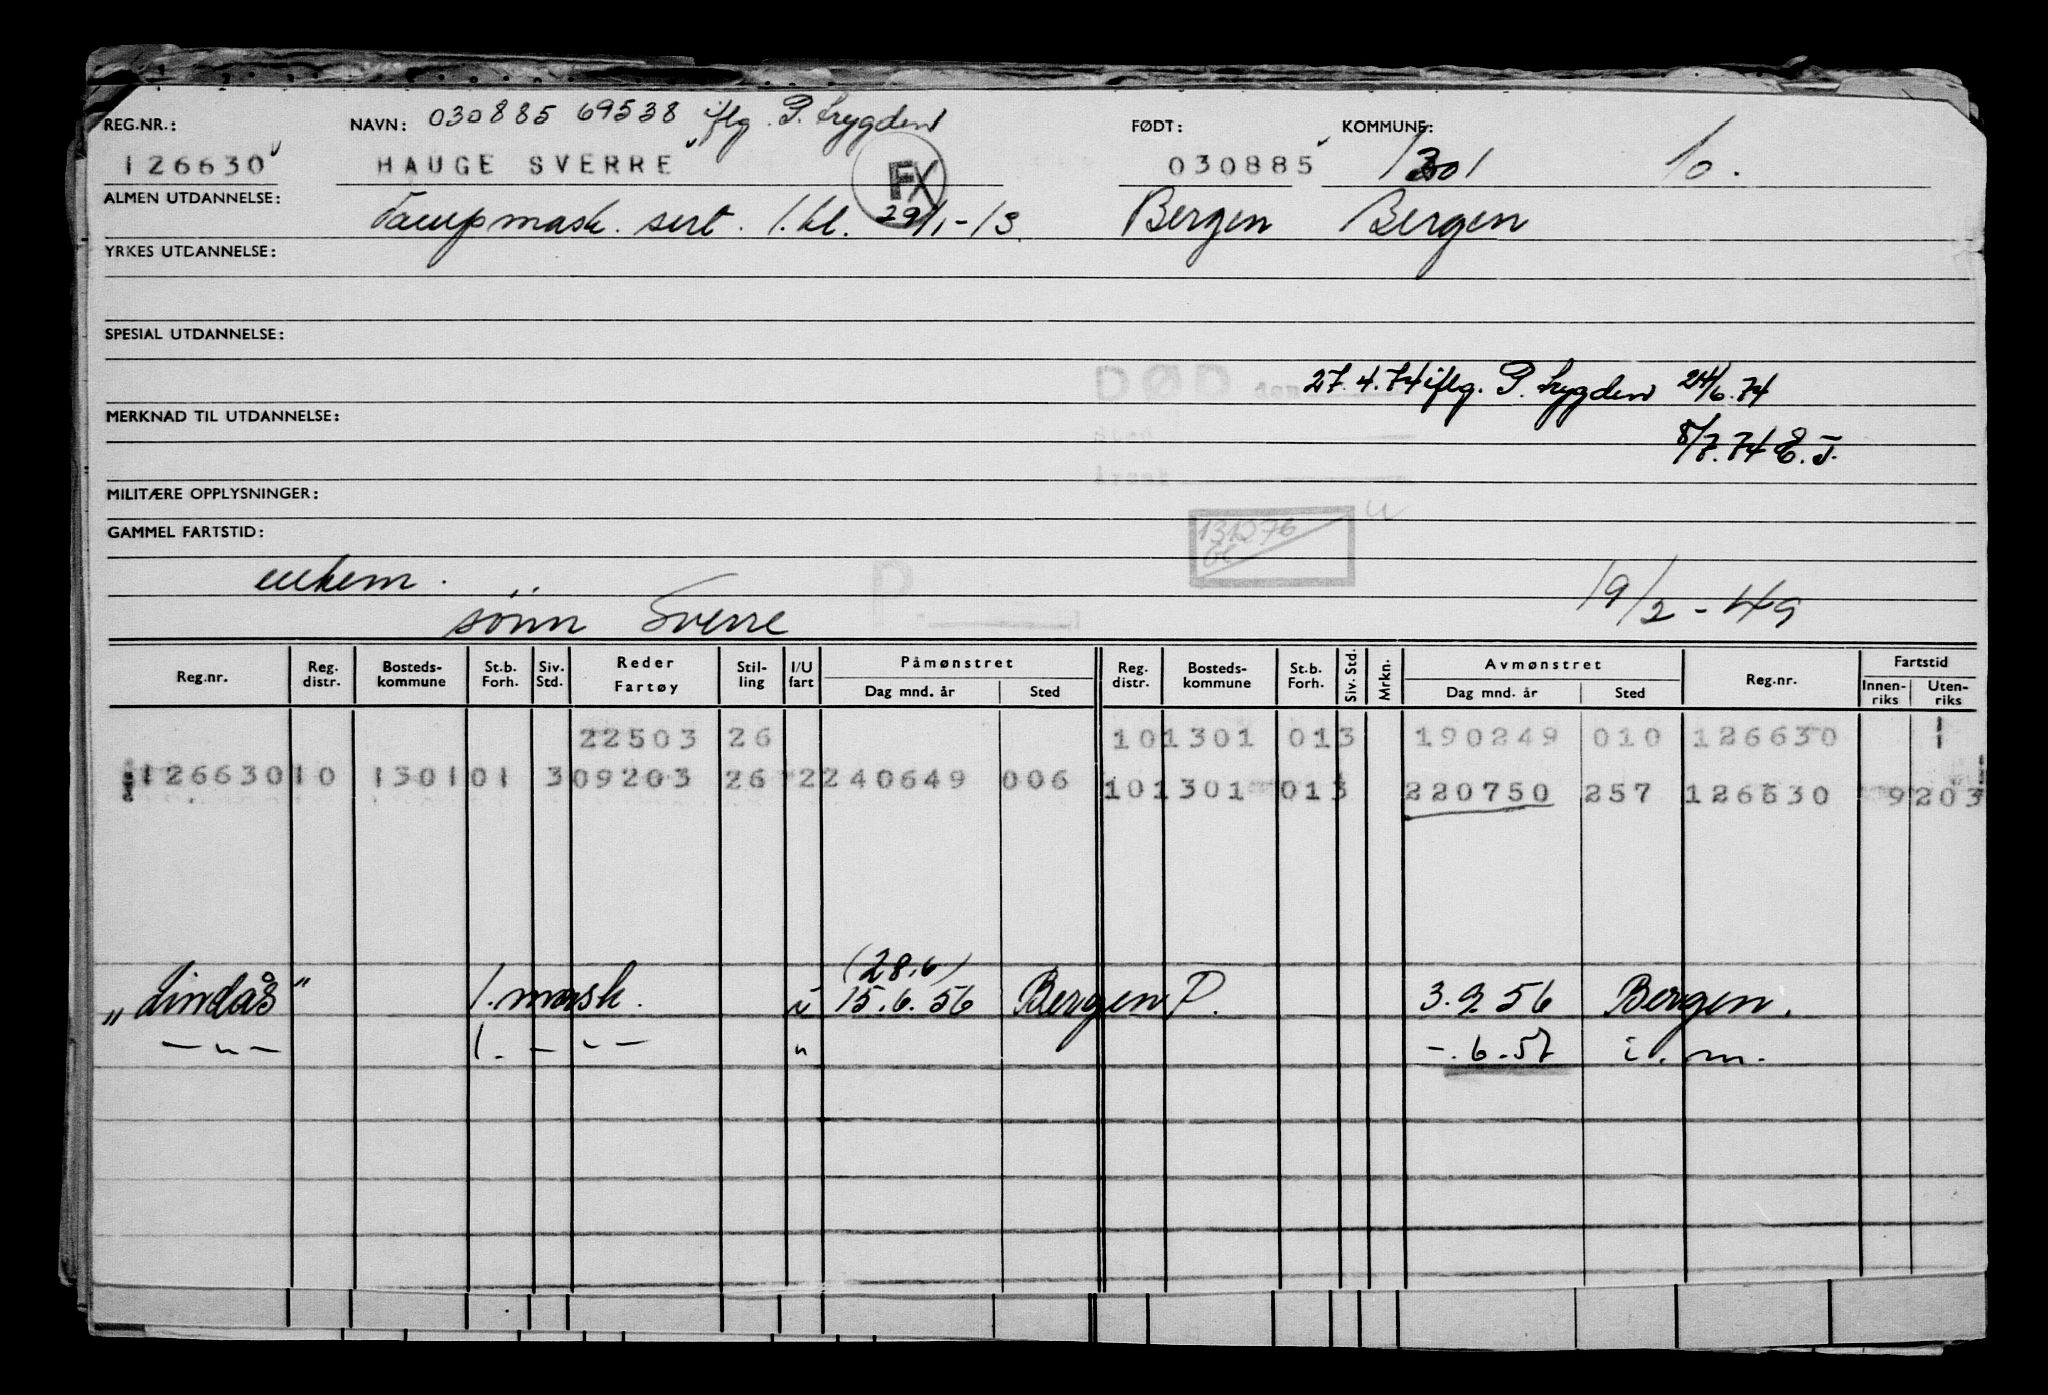 REG.NR.: NAVN: 030885 69538 iflg. P. Trygden FØDT: KOMMUNE:
126630 HAUGE SVERRE FX 030885 1301 %.
ALMEN UTDANNELSE: Dampmask. sert. 1. kl. 29/1-13 Bergen Bergen
YRKES UTDANNELSE:
SPESIAL UTDANNELSE:
DØD den 27.4.74 iflg. P. Trygden 24/6.74
MERKNAD TIL UTDANNELSE:
8/7.74 E.T.
MILITÆRE OPPLYSNINGER:
131276
GAMMEL FARTSTID:
enkem. 19/2-49
sönn Sverre
Reg.nr. Reg. distr. Bosteds-kommune St.b. Forh. Siv. Std. Reder Fartøy Stil-ling I/U fart Påmønstret Dag mnd. år Sted Reg. distr. Bosteds-kommune St.b. Forh. Siv. Std. Mrkn. Avmønstret Dag mnd. år Sted Reg.nr. Fartstid Innen-riks Uten-riks
22503 26 101301 013 190249 010 126630 1
126630 10 1301 01 3 09203 26 2 240649 006 101301 013 220750 257 126630 9203
(28.6)
„Lindås" 1. mask. u 15.6.56 Bergen P. 3.9.56 Bergen.
—"— 1. —"— " —.6.57 i.m.